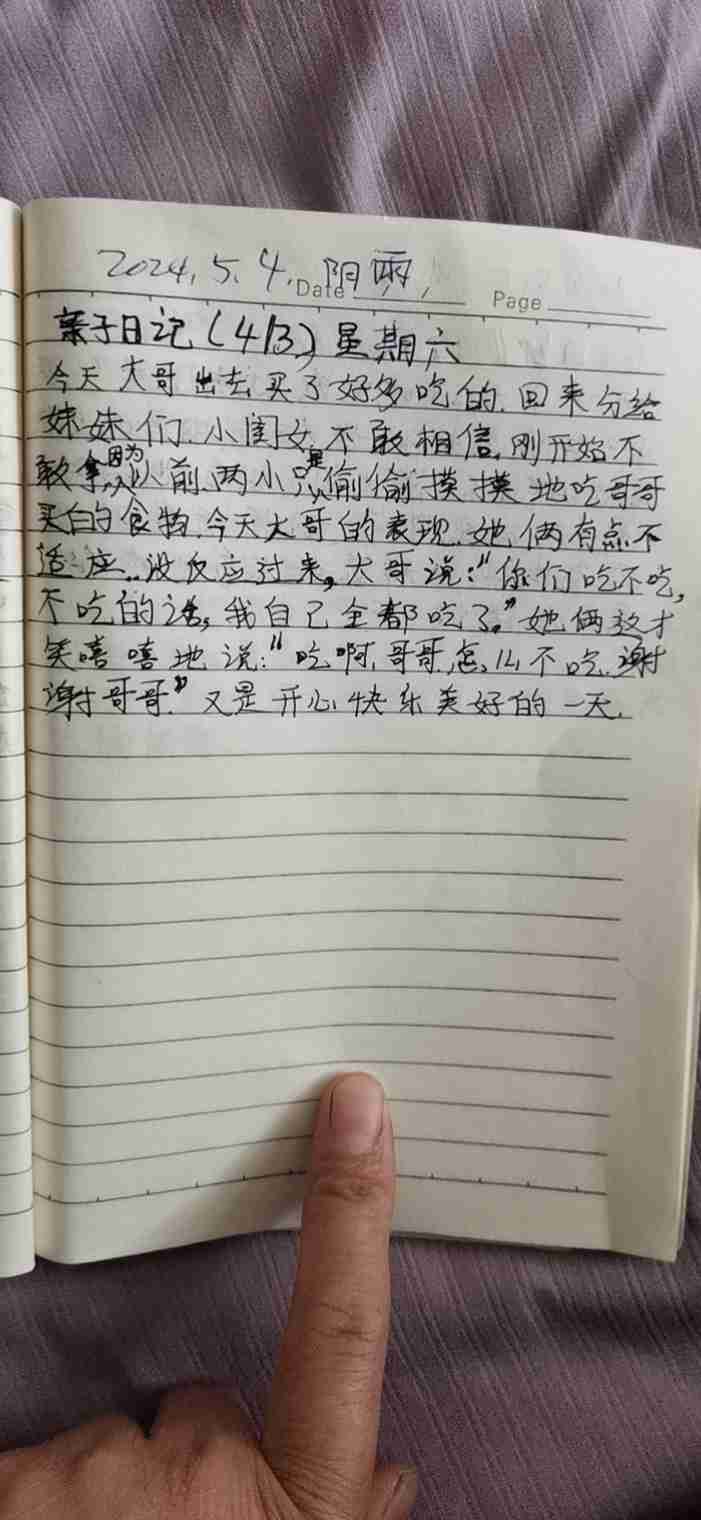 2024.5.4. 阴雨,
Date Page
亲子日记(413)星期六
今天大哥出去买了好多吃的.回来分给
妹妹们.小闺女不敢相信,刚开始不
敢拿,因为以前两小只是偷偷摸摸地吃哥哥
买的食物.今天大哥的表现.她俩有点不
适应..没反应过来,大哥说:“你们吃不吃,
不吃的话,我自己全都吃了。”她俩这才
笑嘻嘻地说:“吃啊,哥哥,怎么不吃.谢
谢哥哥.”又是开心快乐美好的一天.